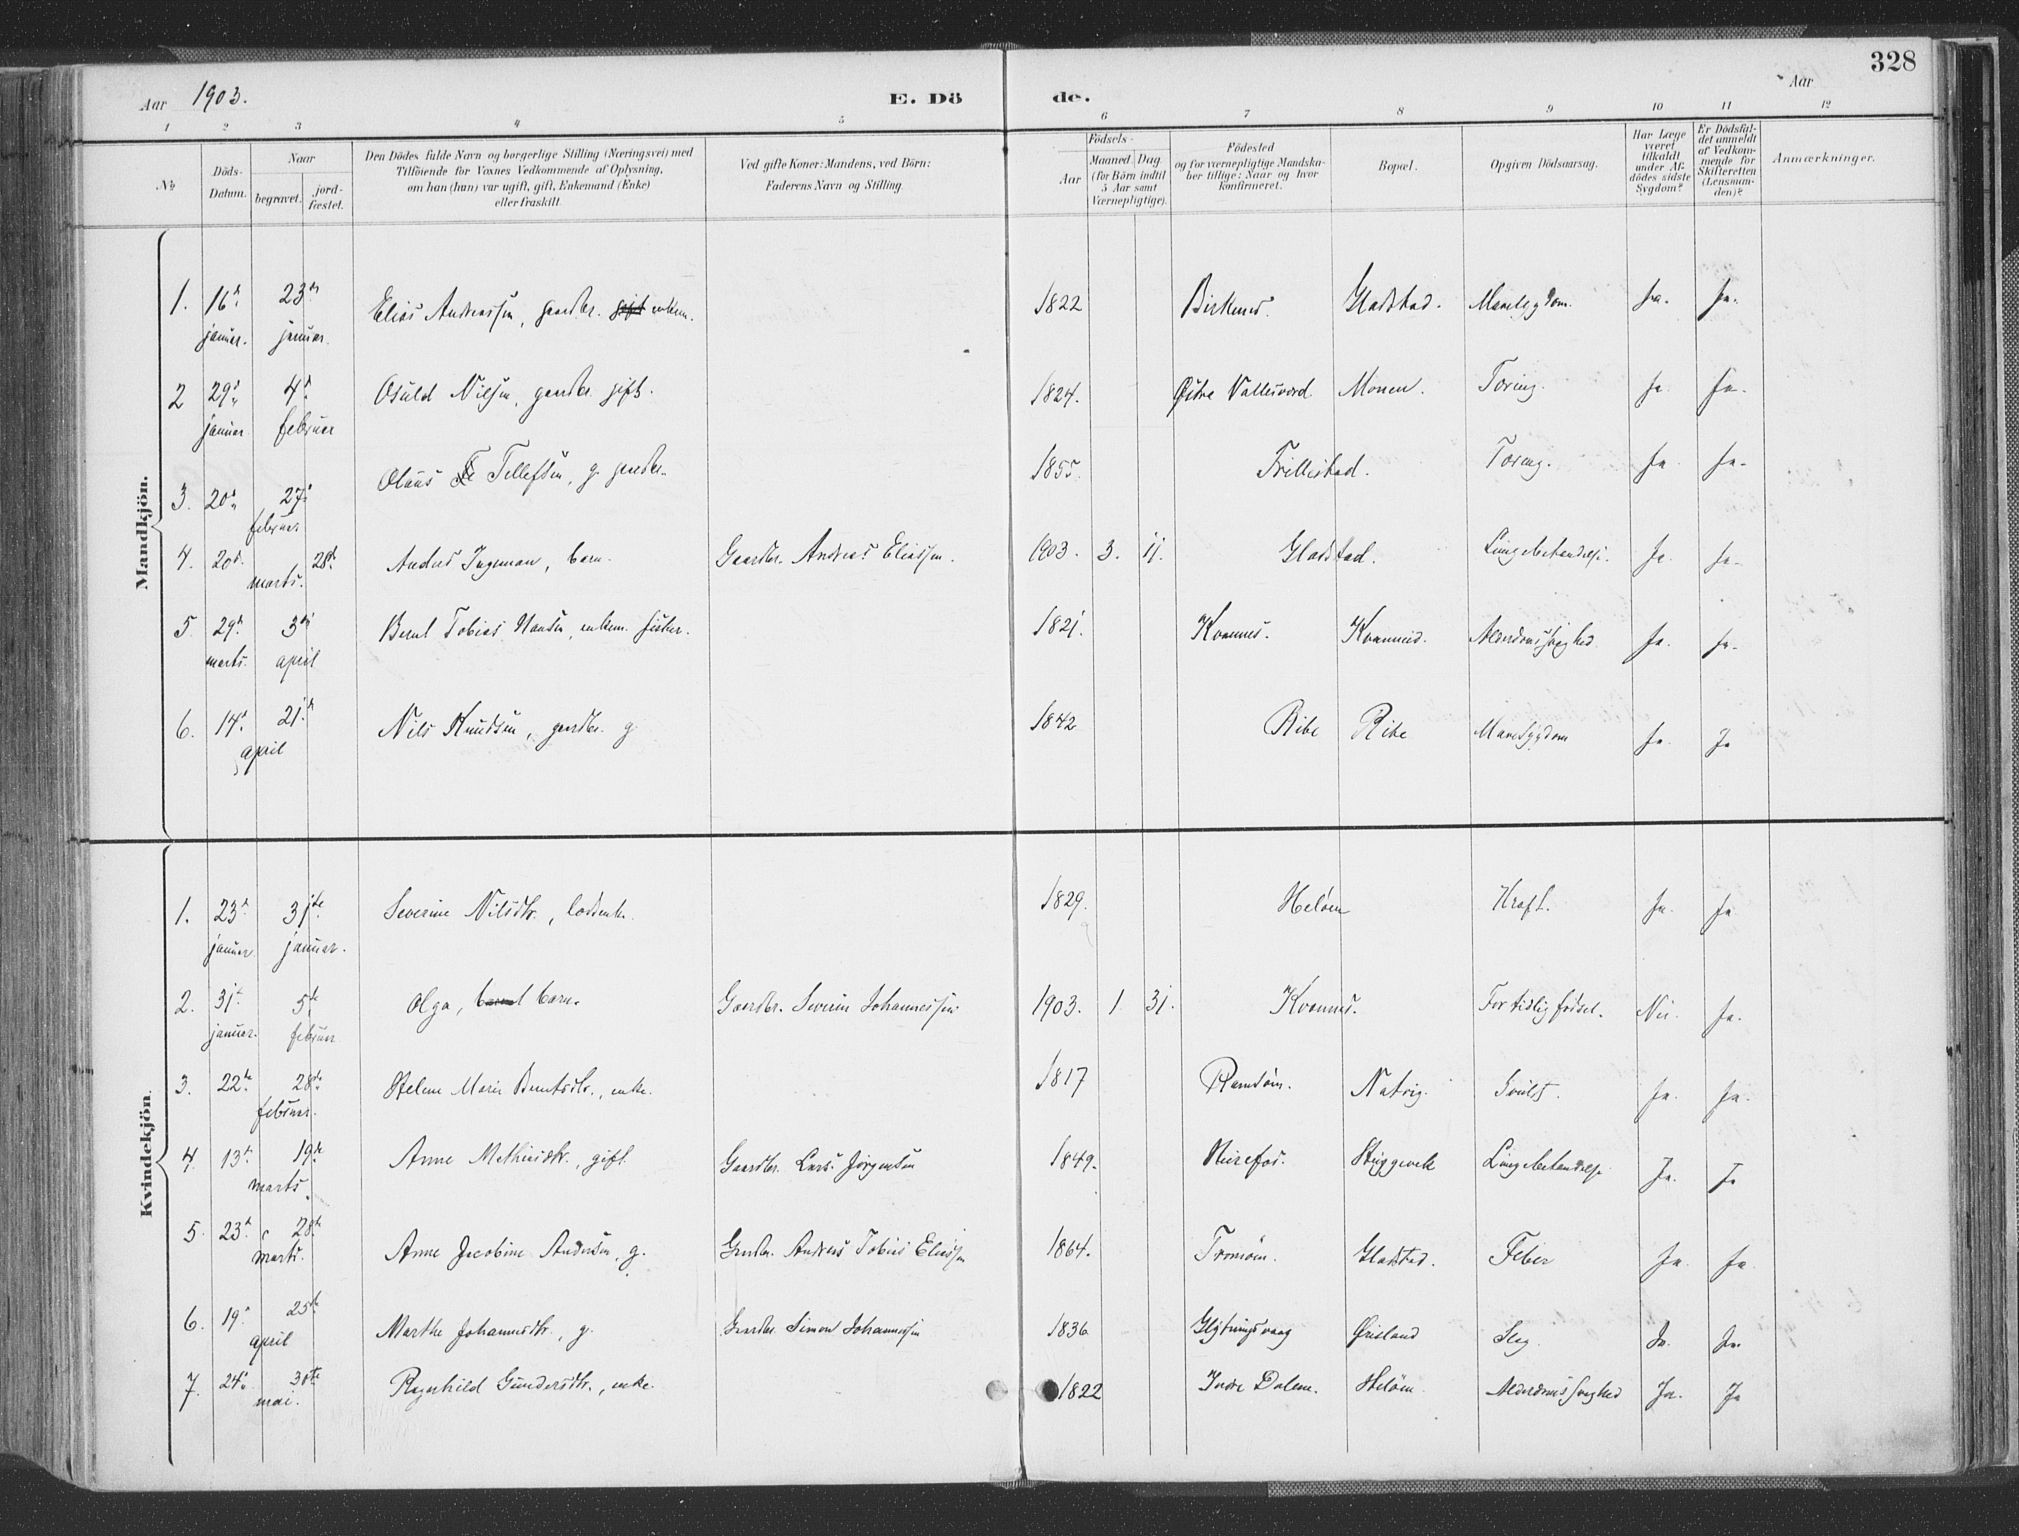 328
Aar 1903. E. Dö de. Aar
1 2 3 4 5 6 7 8 9 10 11 12
No
Döds-Datum.
Naar
begravet.
jord-fæstet.
Den Dödes fulde Navn og borgerlige Stilling (Næringsvei) med
Tilföiende for Voxnes Vedkommende af Oplysning,
om han (hun) var ugift, gift, Enkemand (Enke)
eller fraskilt.
Ved gifte Koner: Mandens, ved Börn:
Faderens Navn og Stilling.
Födsels-
Aar
Maaned Dag
(for Börn indtil
5 Aar samt
Værnepligtige).
Födested
og for værnepligtige Mandska-
ber tillige: Naar og hvor
konfirmeret.
Bopæl.
Opgiven Dödsaarsag.
Har Læge
været
tilkaldt
under Af-
dödes sidste
Sygdom?
Er Dödsfal-
det anmeldt
af Vedkom-
mende for
Skifteretten
(Lensman-
den)?
Anmærkninger.
Mandkjön.
1. 16d 23d Elias Andreassen, gaardbr. gift enkem. 1822 Gladstad. Mavesygdom. Ja. Ja.
januar. januar.
2 29d 4d Osuld Nilsen, gaardbr. gift. 1824. Østre Vallesværd Monen. Tæring. Ja. Ja.
januar februar
3. 20d 27d Olaus Tellefsen, g. gaardbr. 1855. Trillestad. Tæring. Ja. Ja.
februar
4. 20d 28d Anders Ingeman, barn. Gaardbr. Andreas Eliassen. 1903. 3. 11. Gladstad. Lungebetændelse. Ja. Ja.
marts.
5. 29d 3d Bernt Tobias Hansen, enkem. fisker. 1821. Kvannes. Alderdomssvaghed. Ja. Ja.
marts. april
6. 14d 21d Nils Knudsen, gaardbr. g. 1842 Ribe Ribe Mavesygdom Ja. Ja
april
Kvindekjön.
1. 23d 31te Severine Nilsdtr., 1829. Heløen Kræft. Ja. Ja
januar januar.
2. 31te 5te Olga, barn. Gaardbr. Severin Johannessen 1903. 1 31. Kvannes. For tidlig fødsel. Nei. Ja.
januar. februar
3. 22de 28de Helene Marie Berntsdtr., enke. 1817 Ramsøen. Natvig. Svulst. Ja. Ja.
februar.
4. 13de 19de Anne Mathisdtr., gift. Gaardbr. Lars Jørgensen 1849. Lungebetændelse Ja. Ja
marts.
5. 23de 28de Anne Jacobine Andersen, g. Gaardbr. Andreas Tobias Eliassen 1864. Tromøen. Gladstad. Feber Ja. Ja
marts.
6. 19de 25de Marthe Johannesdtr., g. Gaardbr. Simon Johannessen 1836 Øisland Slag. Ja. Ja.
april
7. 24de 30te Ragnhild Gundersdtr., enke. 1822 Indre Dalene. Heløen. Alderdomssvaghed Ja. Ja
mai.